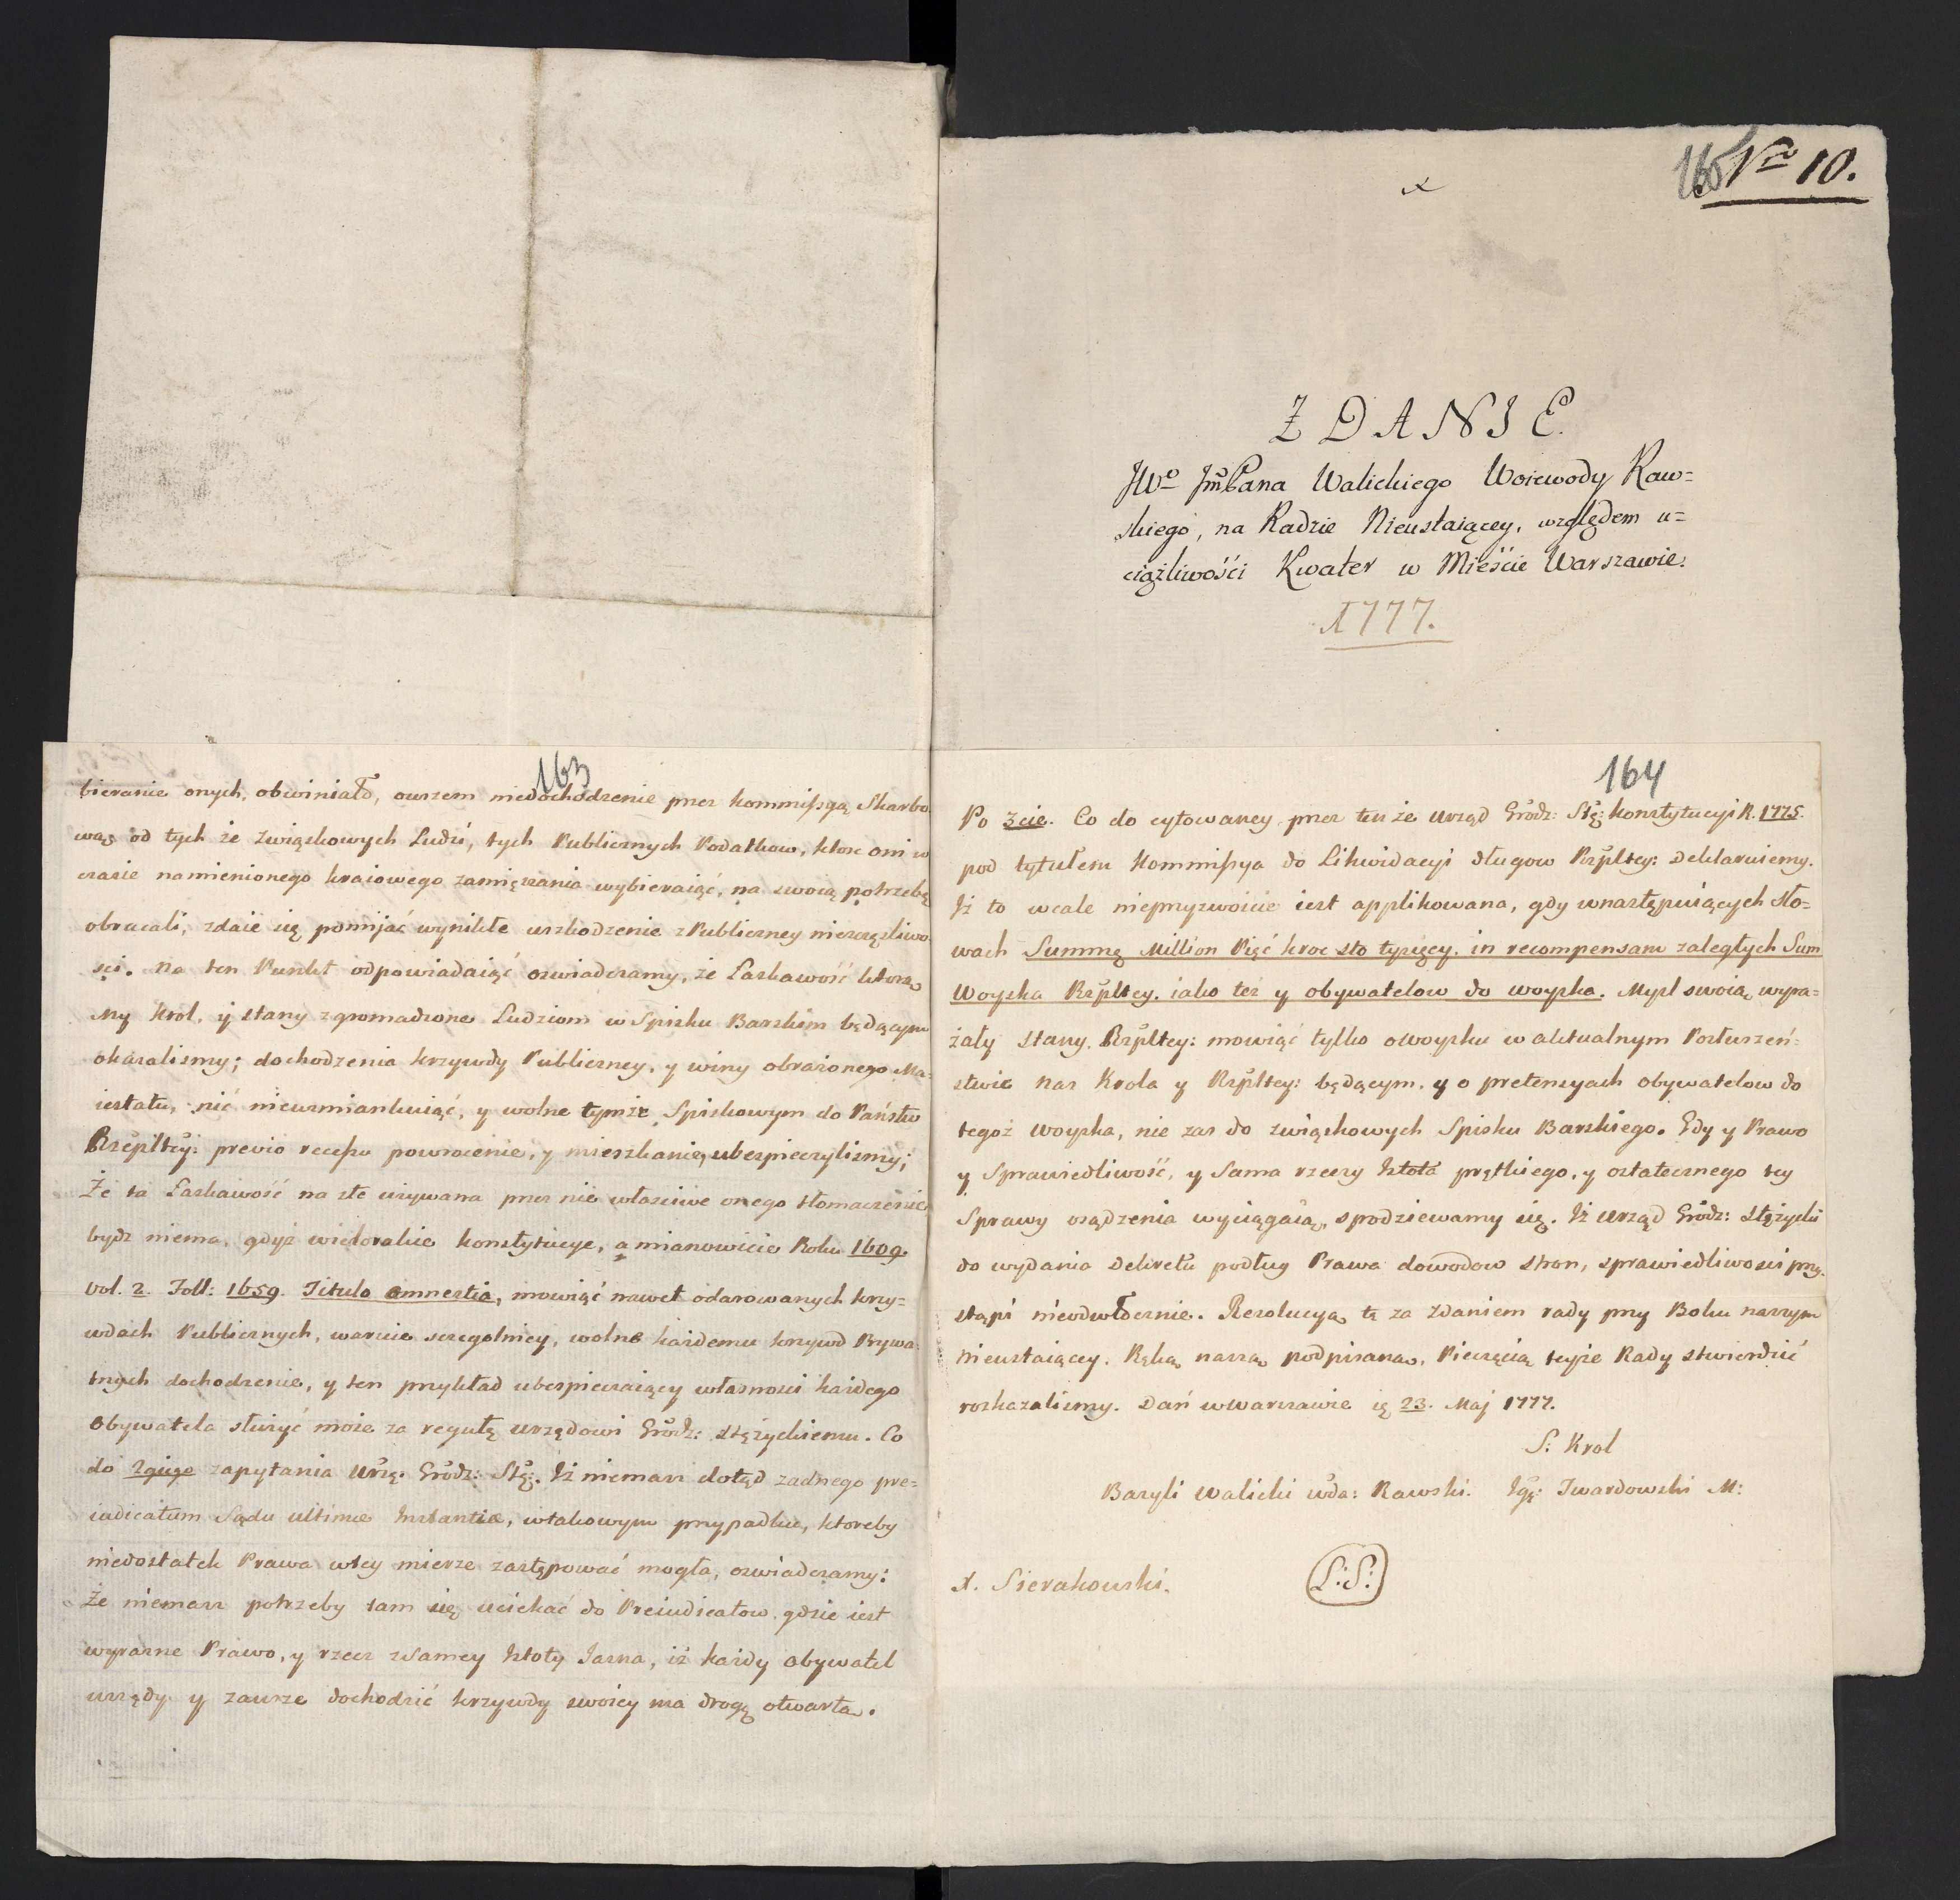 165 Nro 10.
x
ZDANIE
JWo JmPana Walickiego Woiewody Raw=
skiego, na Radzie Nieustaiącey, względem u=
ciążliwości Kwater w Mieście Warszawie.
1777.
163
bieranie onych, obwiniało, owszem niedochodzenie przez kommissyą Skarbo
wą od tych że związkowych Ludzi, tych Publicznych Podatkow, ktore oni w
czasie namienionego kraiowego zamięszania wybieraiąc, na swoią potrzebę
obracali, zdaie się pomijać wynikłe uszkodzenie z Publiczney nieszczęśliwo
ści. na ten Punkt odpowiadaiąc oswiadczamy, że Łaskawość ktorą
My Krol, y stany zgromadzone Ludziom w Spisku Barskim będącym
okazalismy; dochodzenia krzywdy Publiczney, y winy obrażonego Ma=
iestatu, nic nieuzmiankuiąc, y wolne tymże Spiskowym do Państw
Rzeplitey: previo recessu powrocenie, y mieszkanie, ubespieczylismy;
Że ta Łaskawość na złe używana przez nie własciwe onego tłomaczenie
bydz niema, gdyż wielorakie konstytucye, a mianowicie Roku 1609.
vol. 2. Foll: 1659. Titulo Amnestia, mowiąc nawet odarowanych krzy=
wdach Publicznych, warcie szczegolniey, wolne każdemu krzywd Prywa=
tnych dochodzenie, y ten przykład ubespieczaiący własnosci każdego
Obywatela służyć może za regułę urzędowi Grodz: Stężyckiemu. Co
do 2giego zapytania Urzę. Grodz: Stę:. Iż niemasz dotąd zadnego pre=
iudicatum Sądu ultimæ Instantiæ, wtakowym przypadku, ktoreby
niedostatek Prawa wtey mierze zastępować mogła, oswiadczamy:
Że niemasz potrzeby tam się uciekać do Preiudicatow gdzie iest
wyrazne Prawo, y rzecz zSamey Istoty Jasna, iż każdy obywatel
wszędy y zawsze dochodzić krzywdy swoiey ma drogę otwartą.
164
Po 3cie. Co do cytowaney przez ten że Urząd Grodz: Stę: konstytucyi R. 1775.
pod tytułem Kommissya do Likwidacyi długow Rzpltey: Deklaruiemy.
Iż to wcale nieprzyzwoicie iest applikowana, gdy wnastępuiących sło=
wach Summę Million Pięć kroc sto tysięcy. in recompensam zaległych Sum
Woyska Rzpltey. iako też y obywatelow do woyska. Mysl swoią wyra=
żały Stany. Rzpltey: mowiąc tylko owoysku w aktualnym Posłuszeń=
stwie nas Krola y Rzpltey: będącym, y o pretensyach obywatelow do
tegoż woyska, nie zas do związkowych Spisku Barskiego. Gdy y Prawo
y Sprawiedliwość, y Sama rzeczy Istota prętkiego, y ostatecznego tey
Sprawy osądzenia wyciągaią, spodziewamy się. Iż Urząd Grodz: Stężycki
do wydania Dekretu podług Prawa dowodow stron, sprawiedliwosci przy=
stąpi nieodwłocznie. Rezolucyą tę za Zdaniem rady przy Boku naszym
nieustaiącey. Ręką naszą podpisaną, Pieczęcią teyże Rady stwierdzić
roskazalismy. Dań w Warszawie ię 23. Maj 1777.
S: Krol
Bazyli Walicki wda: Rawski. Igę: Twardowski M:
X. Sierakowski.
L:S: